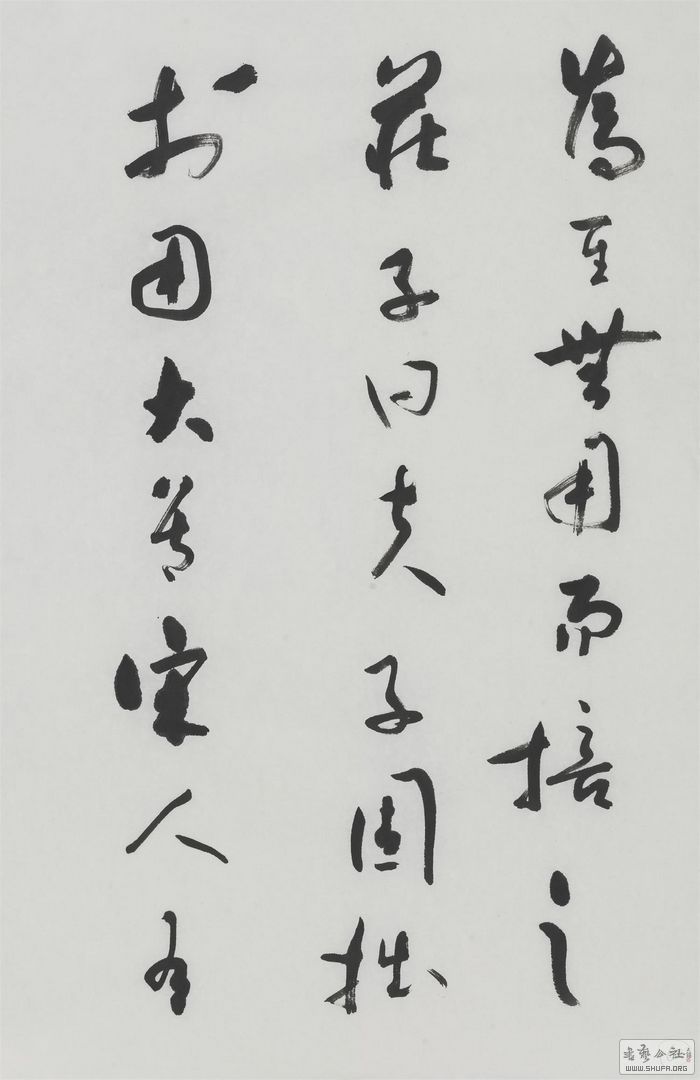 為其無用而掊之
莊子曰夫子固拙
於用大矣宋人有
書藝公社
WWW.SHUFA.ORG